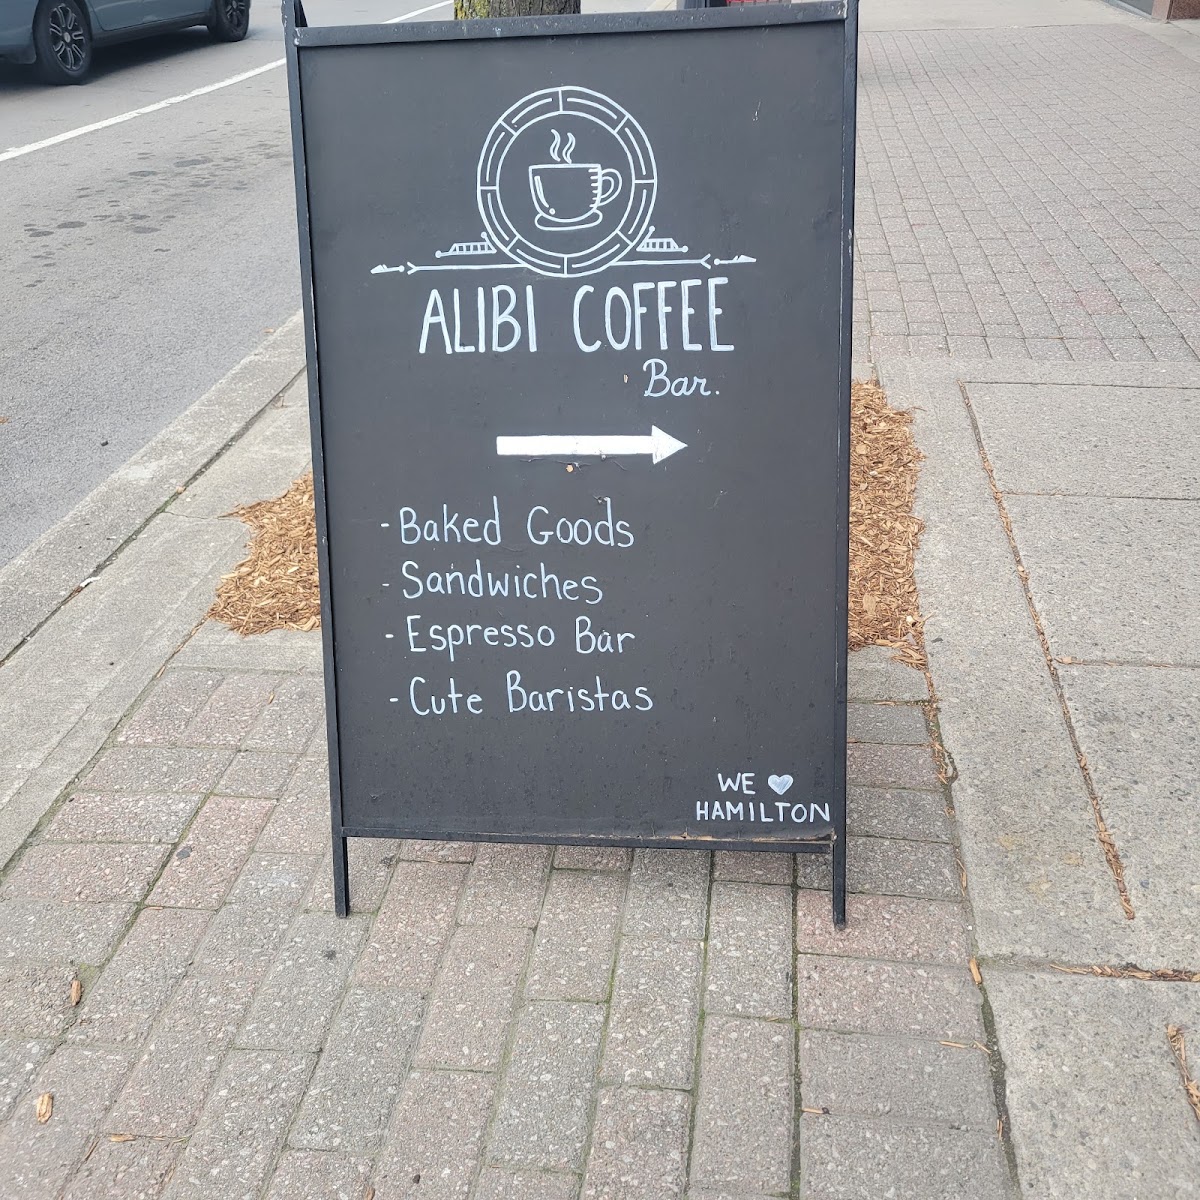 ALIBI COFFEE
Bar.
- Baked Goods
- Sandwiches
- Espresso Bar
- Cute Baristas
WE ♥
HAMILTON